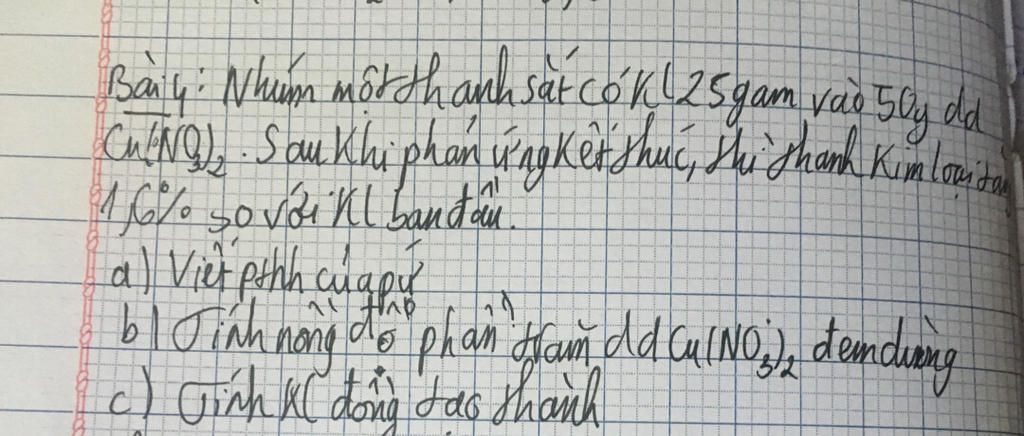 Bài 4: Nhúm một thanh sắt có Kl 25gam vào 50g dd
Cu(NO3)2. Sau khi phản ứng kết thúc, thì thanh kim loại tăng
1,6% so với Kl ban đầu.
a) Viết pthh của pứ
b) Tính nồng độ phần trăm dd Cu(NO3)2 đem dùng
c) Tính Kl đồng tạo thành